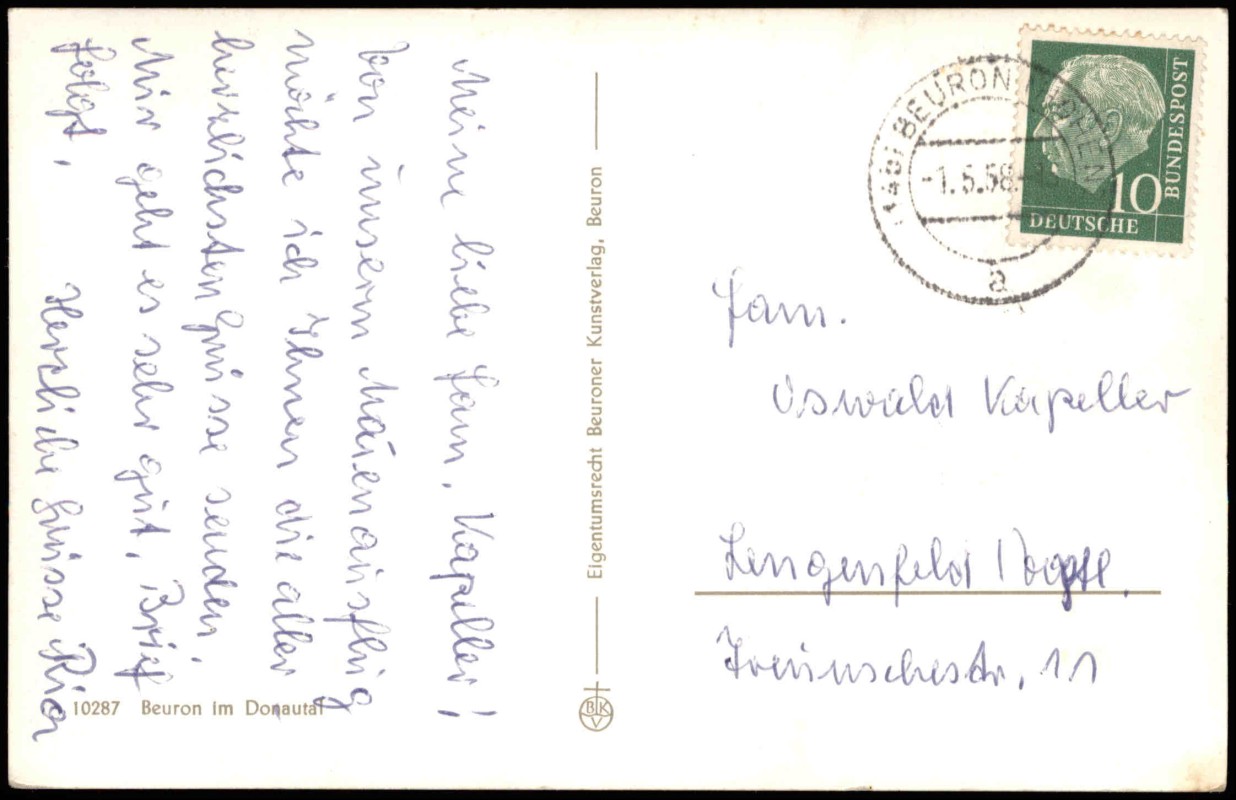 Meine liebe Fam. Kapeller!
Von unserm Maienausflug
möchte ich Ihnen die aller
herzlichsten Grüsse senden.
Mir geht es sehr gut, Brief
folgt.
Herzliche Grüsse Ria
10287 Beuron im Donautal
Eigentumsrecht Beuroner Kunstverlag, Beuron
BKV
BEURON
-1.5.58.
a
10
DEUTSCHE
BUNDESPOST
Fam.
Oswald Kapeller
Lengenfeld / Vogtl.
11